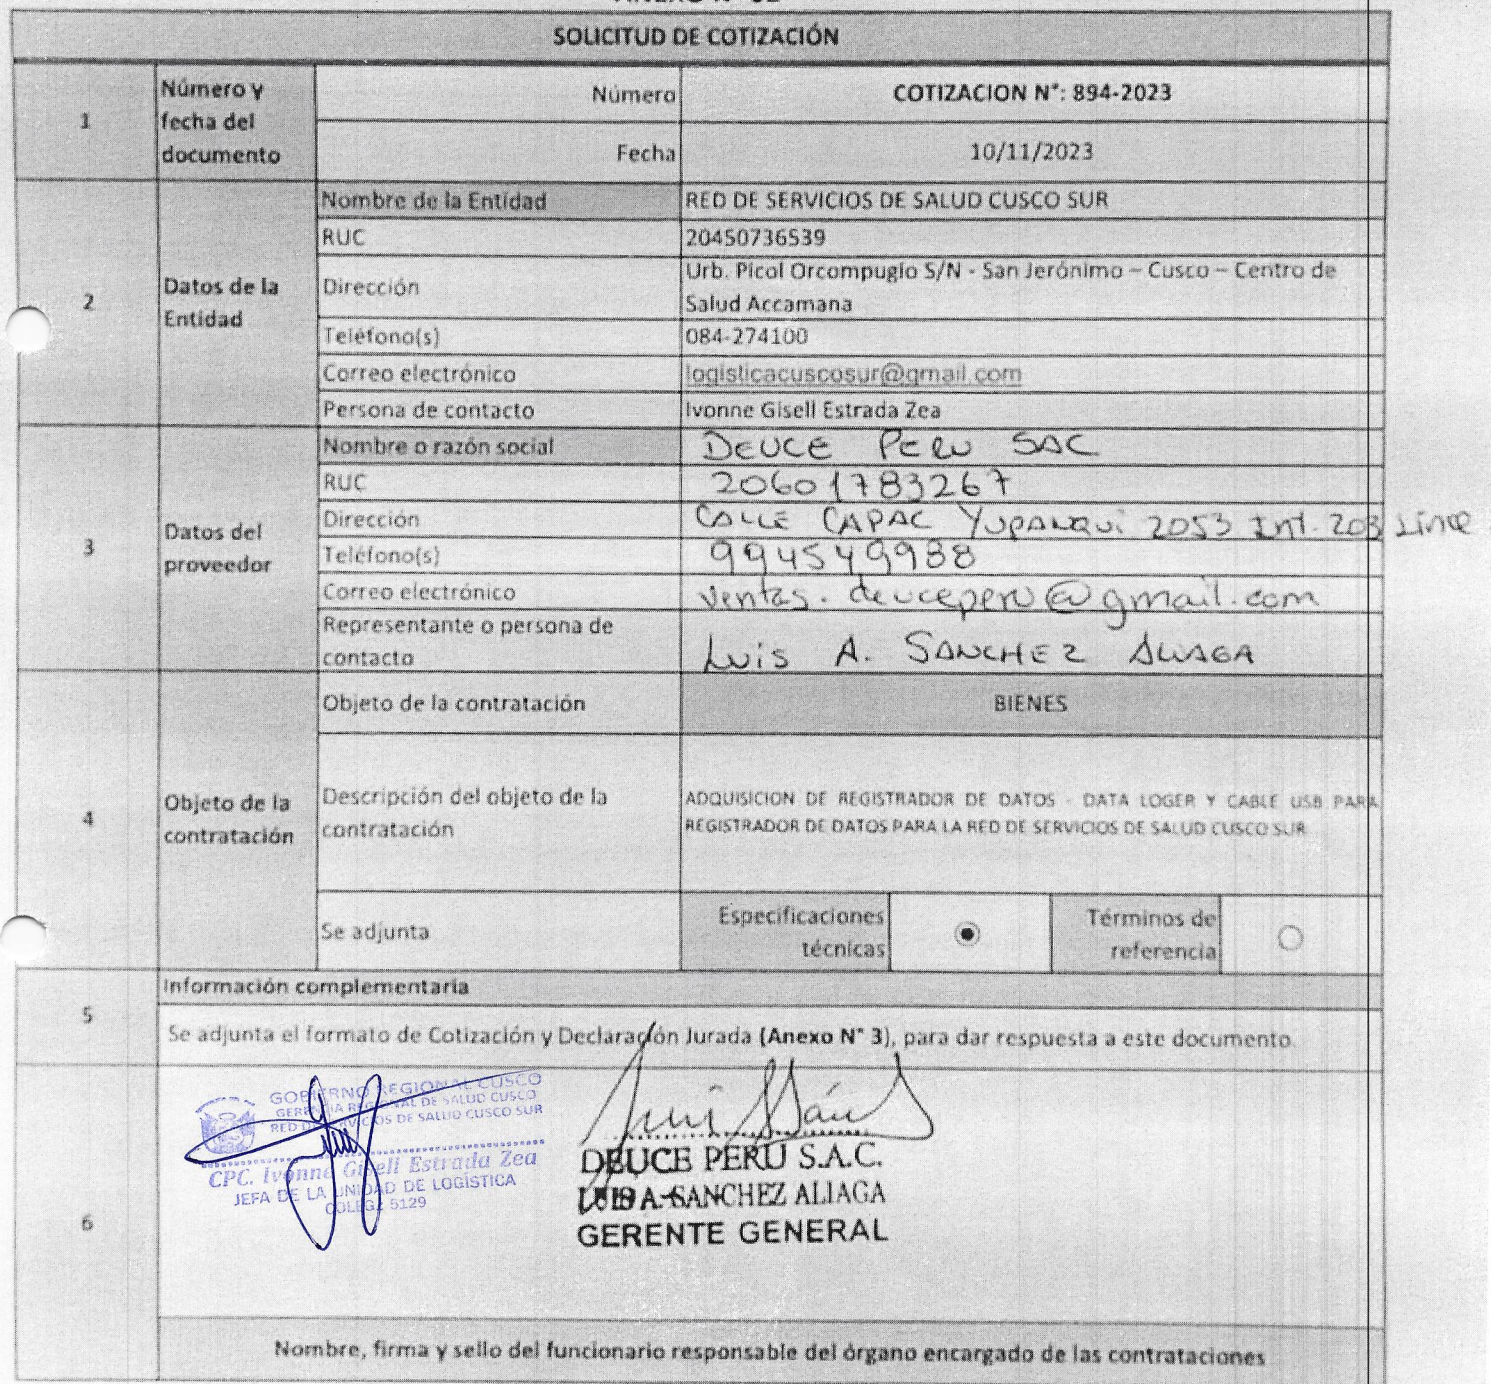 SOLICITUD DE COTIZACIÓN
1
Número y
fecha del
documento
Número
COTIZACION N°: 894-2023
Fecha
10/11/2023
2
Datos de la
Entidad
Nombre de la Entidad
RED DE SERVICIOS DE SALUD CUSCO SUR
RUC
20450736539
Dirección
Urb. Picol Orcompugio S/N - San Jerónimo – Cusco – Centro de
Salud Accamana
Teléfono(s)
084-274100
Correo electrónico
logisticacuscosur@gmail.com
Persona de contacto
Ivonne Gisell Estrada Zea
3
Datos del
proveedor
Nombre o razón social
DEUCE PERU SAC
RUC
20601783267
Dirección
CALLE CAPAC YUPANQUI 2053 Int. 203 Lince
Teléfono(s)
994549988
Correo electrónico
ventas.deuceperu@gmail.com
Representante o persona de
contacto
Luis A. SANCHEZ ALIAGA
4
Objeto de la
contratación
Objeto de la contratación
BIENES
Descripción del objeto de la
contratación
ADQUISICION DE REGISTRADOR DE DATOS - DATA LOGER Y CABLE USB PARA
REGISTRADOR DE DATOS PARA LA RED DE SERVICIOS DE SALUD CUSCO SUR
Se adjunta
Especificaciones
técnicas
Términos de
referencia
5
Información complementaria
Se adjunta el formato de Cotización y Declaración Jurada (Anexo N° 3), para dar respuesta a este documento.
6
GOBIERNO REGIONAL CUSCO
GERENCIA REGIONAL DE SALUD CUSCO
RED DE SERVICIOS DE SALUD CUSCO SUR
CPC. Ivonne Gisell Estrada Zea
JEFA DE LA UNIDAD DE LOGÍSTICA
5129
DEUCE PERU S.A.C.
LUIS A. SANCHEZ ALIAGA
GERENTE GENERAL
Nombre, firma y sello del funcionario responsable del órgano encargado de las contrataciones